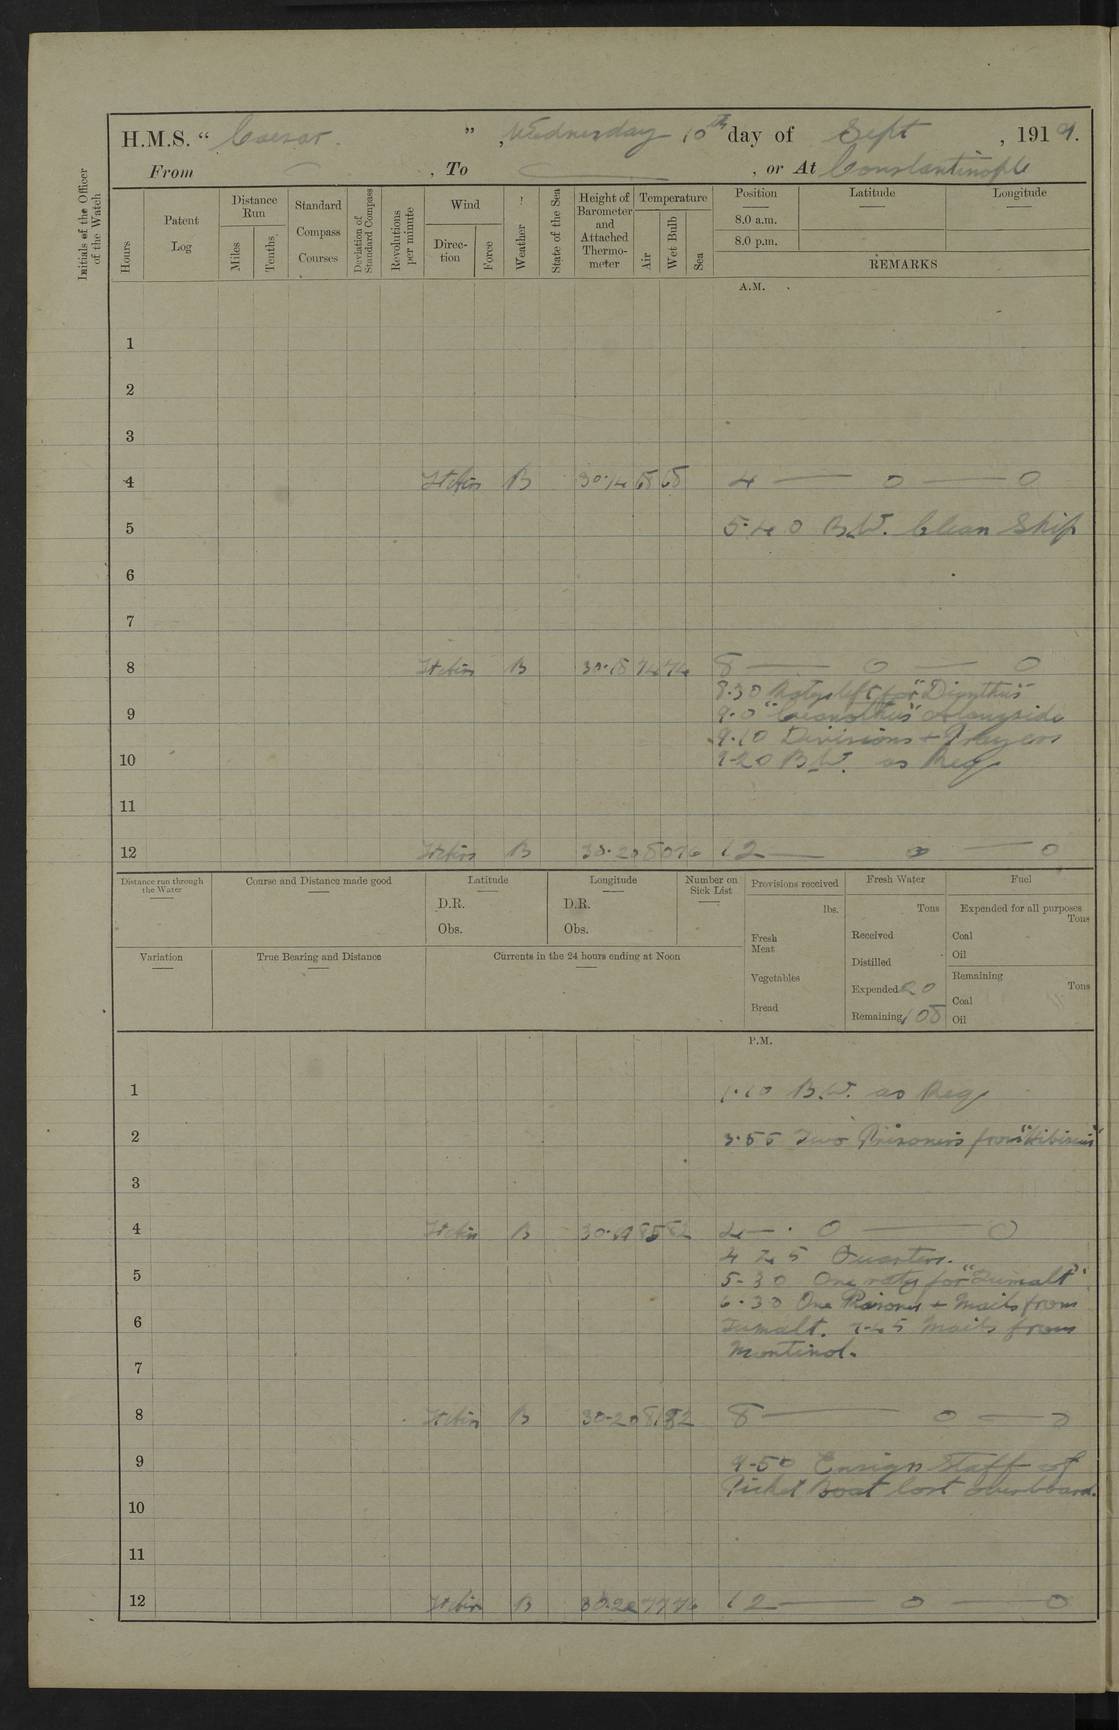 H.M.S. “ Caesar. ” , Wednesday 10th day of Sept , 1919.
From , To , or At Constantinople
Initials of the Officer of the Watch
Hours
Patent Log
Distance Run
Miles
Tenths
Standard Compass Courses
Deviation of Standard Compass
Revolutions per minute
Wind
Direction
Force
Weather
State of the Sea
Height of Barometer and Attached Thermometer
Temperature
Air
Wet Bulb
Sea
Position Latitude Longitude
8.0 a.m.
8.0 p.m.
REMARKS
A.M.
1
2
3
4 B 30.14 68 68 4 — 0 — 0
5 5.40 B.W. Clean Ship
6
7
8 B 30.18 74 74 8 — 0 — 0
8.30 left for
9 9.0 "Ceanothus" alongside
9.10 Divisions + Prayers
10 9.20 B.W. as Reqd
11
12 B 30.20 80 76 12 — 0 — 0
Distance run through the Water
Course and Distance made good
Latitude
D.R.
Obs.
Longitude
D.R.
Obs.
Number on Sick List
Provisions received
lbs.
Fresh Meat
Vegetables
Bread
Fresh Water
Tons
Received
Distilled
Expended 20
Remaining 108
Fuel
Expended for all purposes
Tons
Coal
Oil
Remaining
Tons
Coal
Oil
Variation
True Bearing and Distance
Currents in the 24 hours ending at Noon
P.M.
1 1.10 B.W. as Reqd
2 3.55 Two Prisoners from "Hibiscus"
3
4 B 30.19 85 82 4 — 0 — 0
4.45 Quarters.
5 5.30 One ratg for
6.30 One Prisoner + Mails from
6 7.45 Mails from
7
8 B 30.20 81 82 8 — 0 — 0
9 9.50 Ensign Staff of
Picket Boat lost overboard.
10
11
12 B 30.20 77 76 12 — 0 — 0